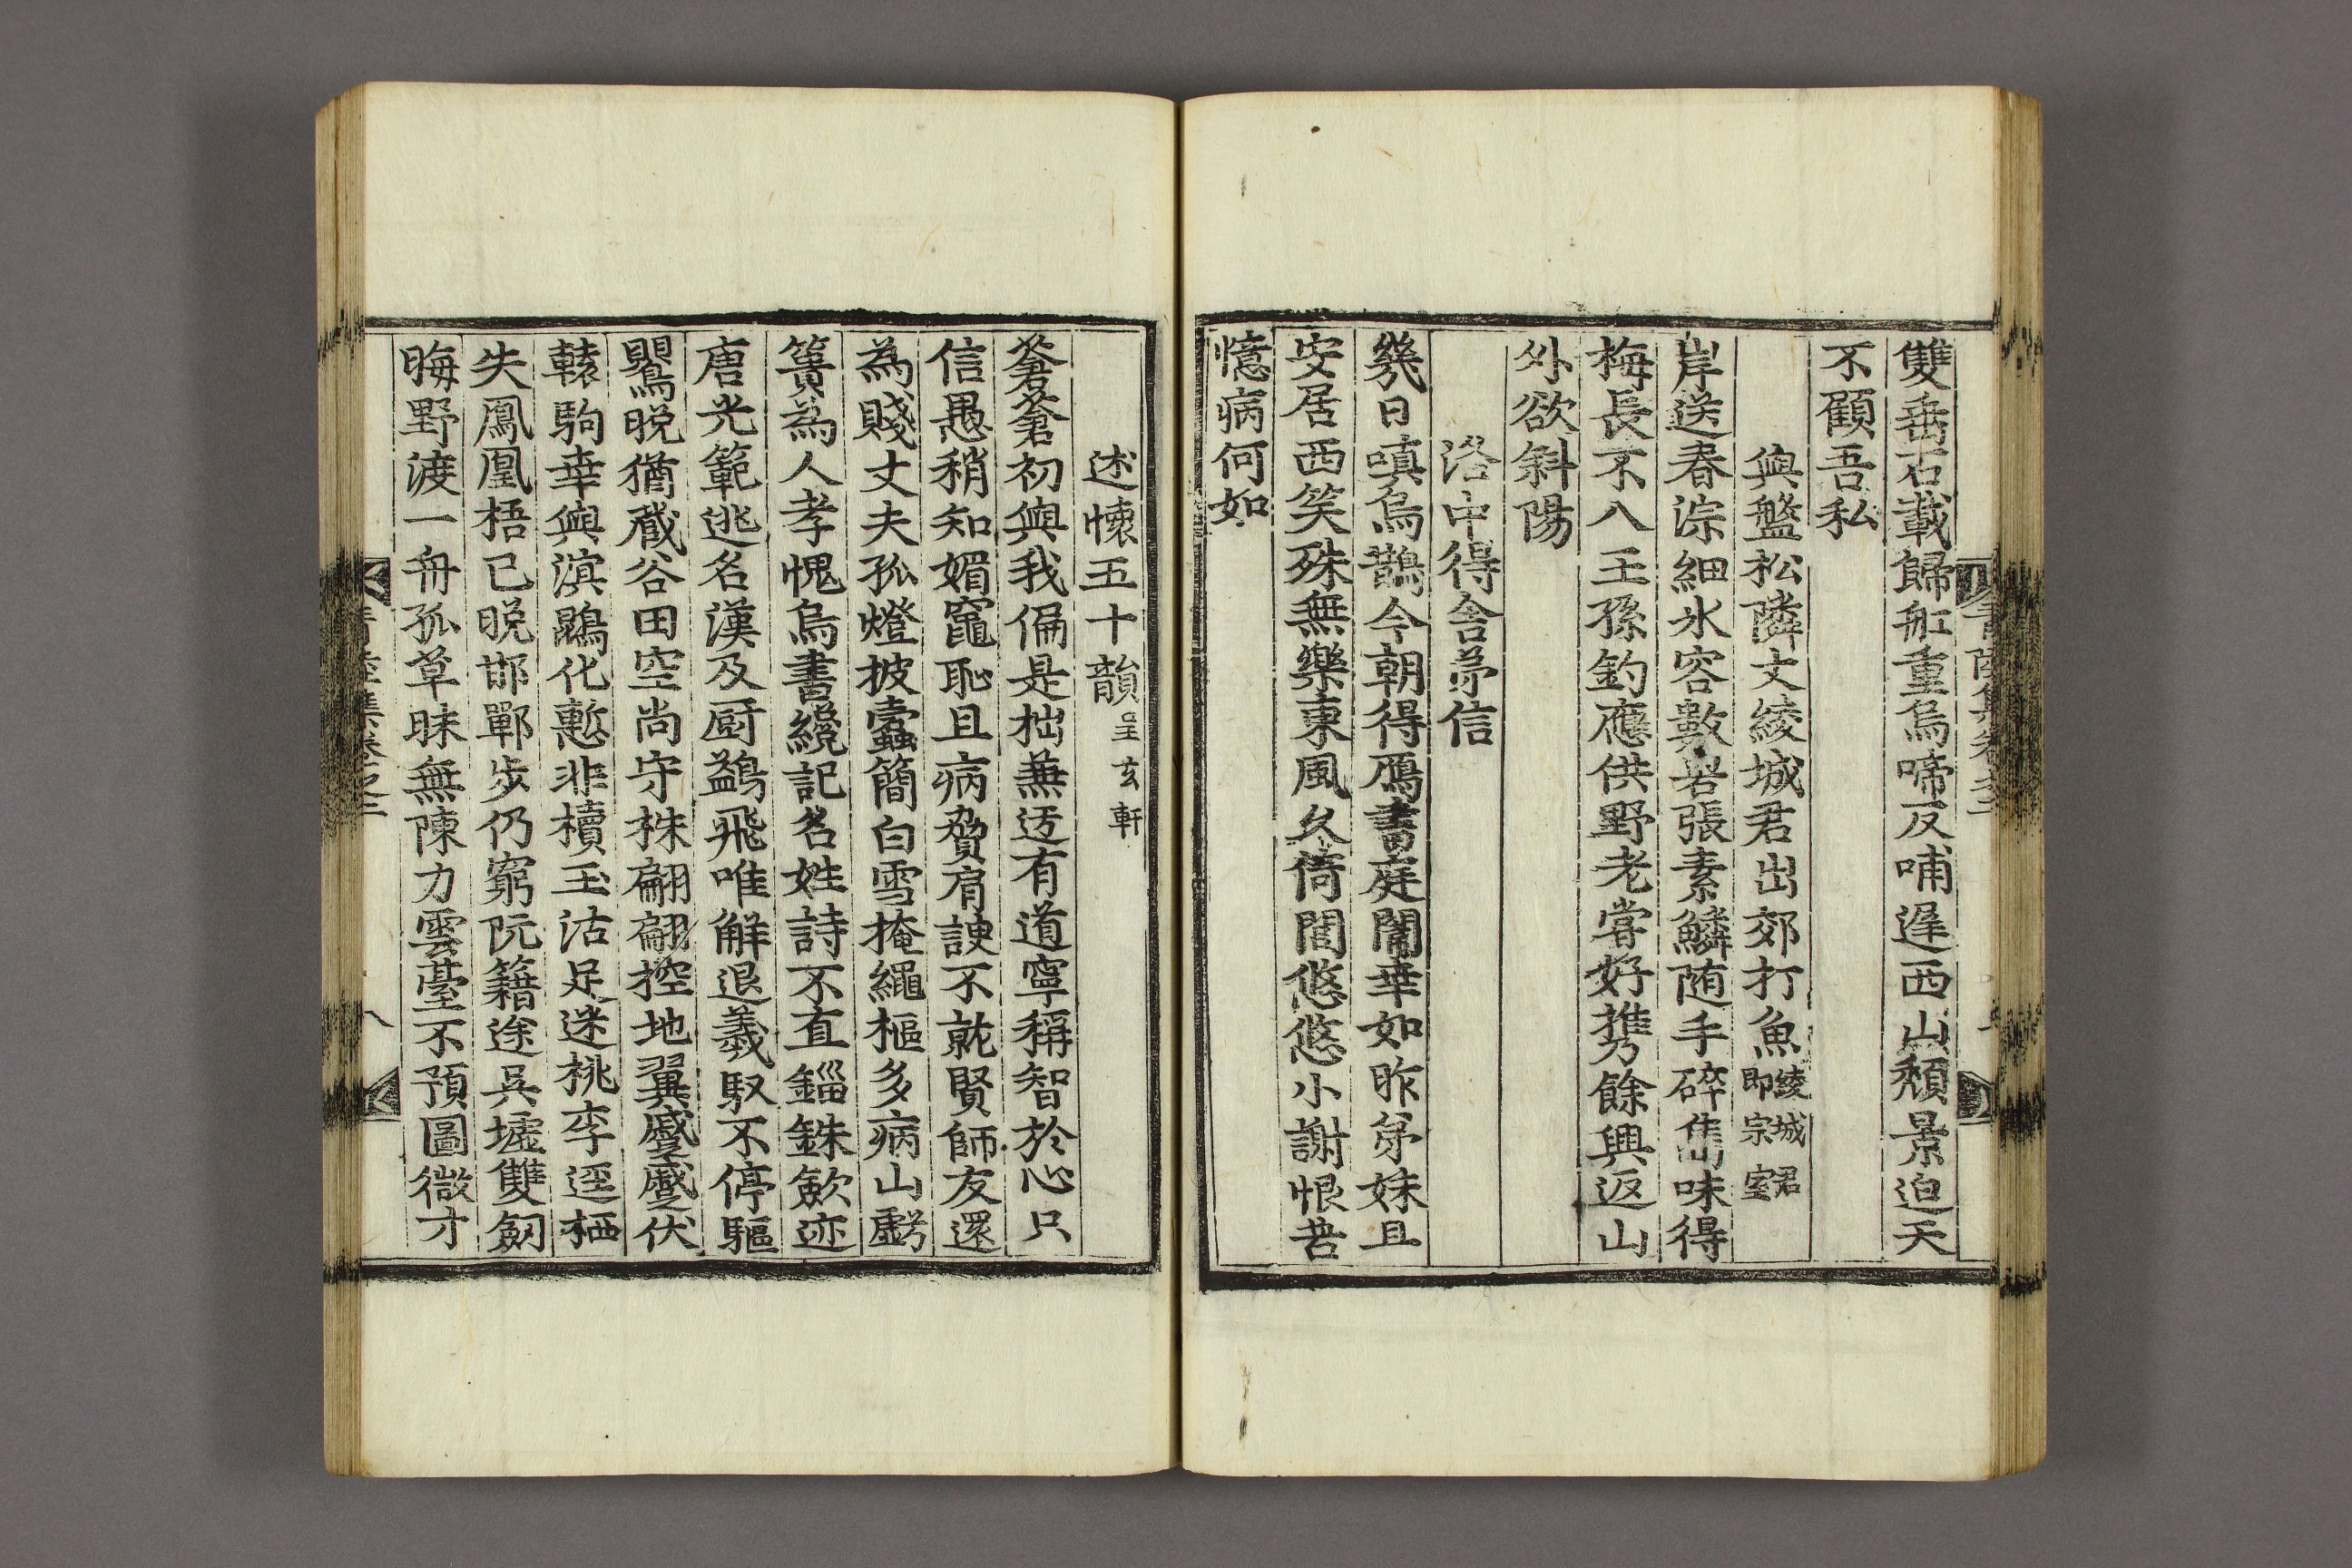 雙垂石載歸舡重烏啼反哺遅西山頹景迫天
不顧吾私
與盤松隣丈綾城君出郊打魚綾城君即宗室
岸送春淙細水容數㟁張素鱗随手碎雋味得
梅長不八王孫釣應供野老甞好携餘興返山
外欲斜陽
洛中得舍弟信
幾日嗔烏鵲今朝得鴈書庭闈幸如昨弟妹且
安居西笑殊無樂東風久倚閭悠悠小謝恨苦
憶病何如
述懷五十韻呈玄軒
蒼蒼初與我偏是拙兼迂有道寧稱智於心只
信愚稍知媚竈恥且病脅肩諛不就賢師友還
為賤丈夫孤燈披蠹簡白雪掩繩樞多病山靈
簣為人孝愧烏書纔記名姓詩不直錙銖歛迹
唐光範逃名漢及厨鷁飛唯解退義馭不停驅
鷃晩猶蔵谷田空尚守株翩翩控地翼蹙蹙伏
轅駒幸與溟鵾化慙非櫝玉沽足迷桃李逕栖
失鳳凰梧已晩邯鄲步仍窮阮籍途吳墟雙劒
晦野渡一舟孤草昧無陳力雲臺不預圖微才
青陸集卷之二
八